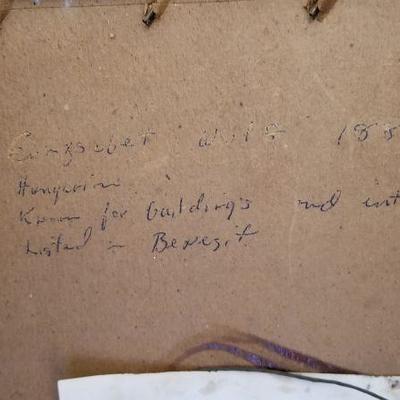 Erzsebet 188
Hungarian
Known for buildings and int
Listed in Benezit